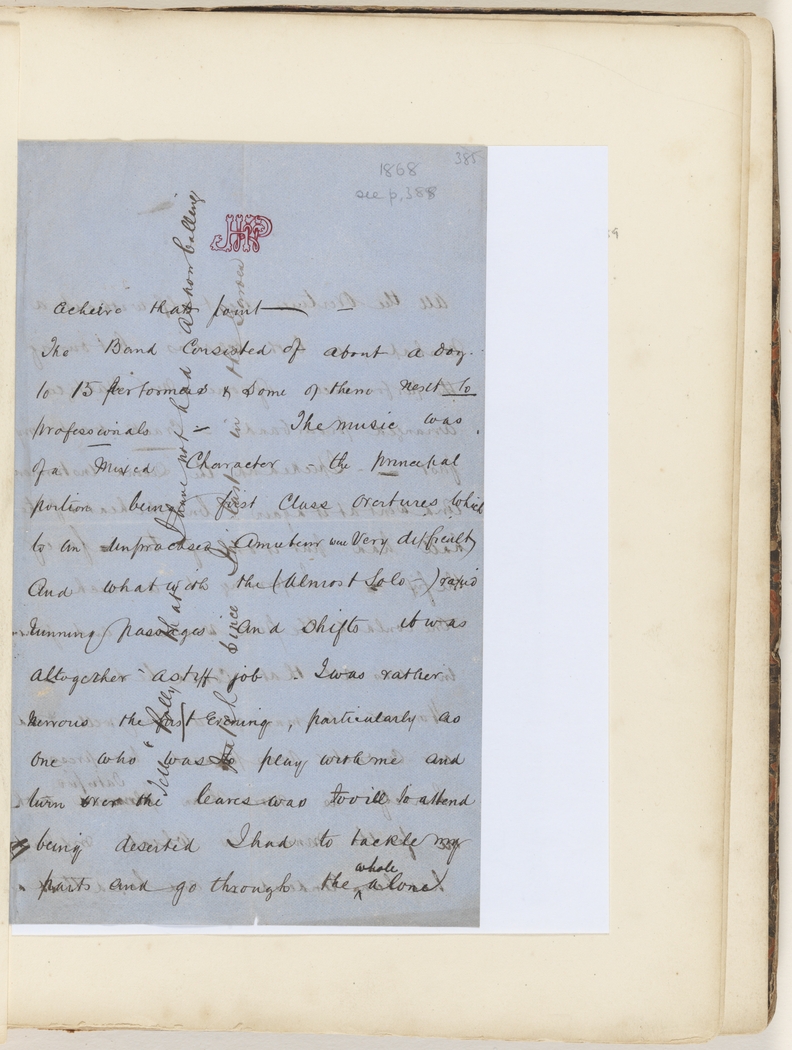 385
1868
see p. 388
JHP
acheive that point —
The Band Consisted of about a doz.
to 15 performers & some of them next to
professionals — The music was
of a Mixed Character the principal
portion being first Class overtures which
to an unpractised Amateur was Very difficult
And what with the (almost Solo) rapid
running passages and shifts it was
altogether a stiff job. I was rather
nervous the first Evening, particularly as
one who was to play with me and
turn over the leaves was too ill to attend
being deserted I had to tackle my
parts and go through the whole alone.
Tell "Polly" that I have not had Ashon calling
since I in the